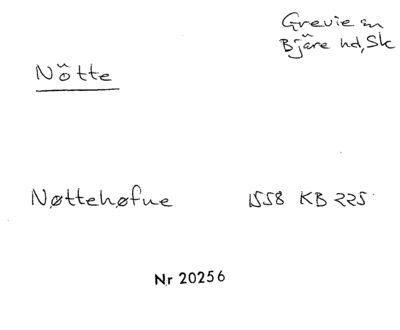 Grevie sn
Bjäre hd, Sk
Nötte
Nøttehøfue 1558 KB 225
Nr 20256